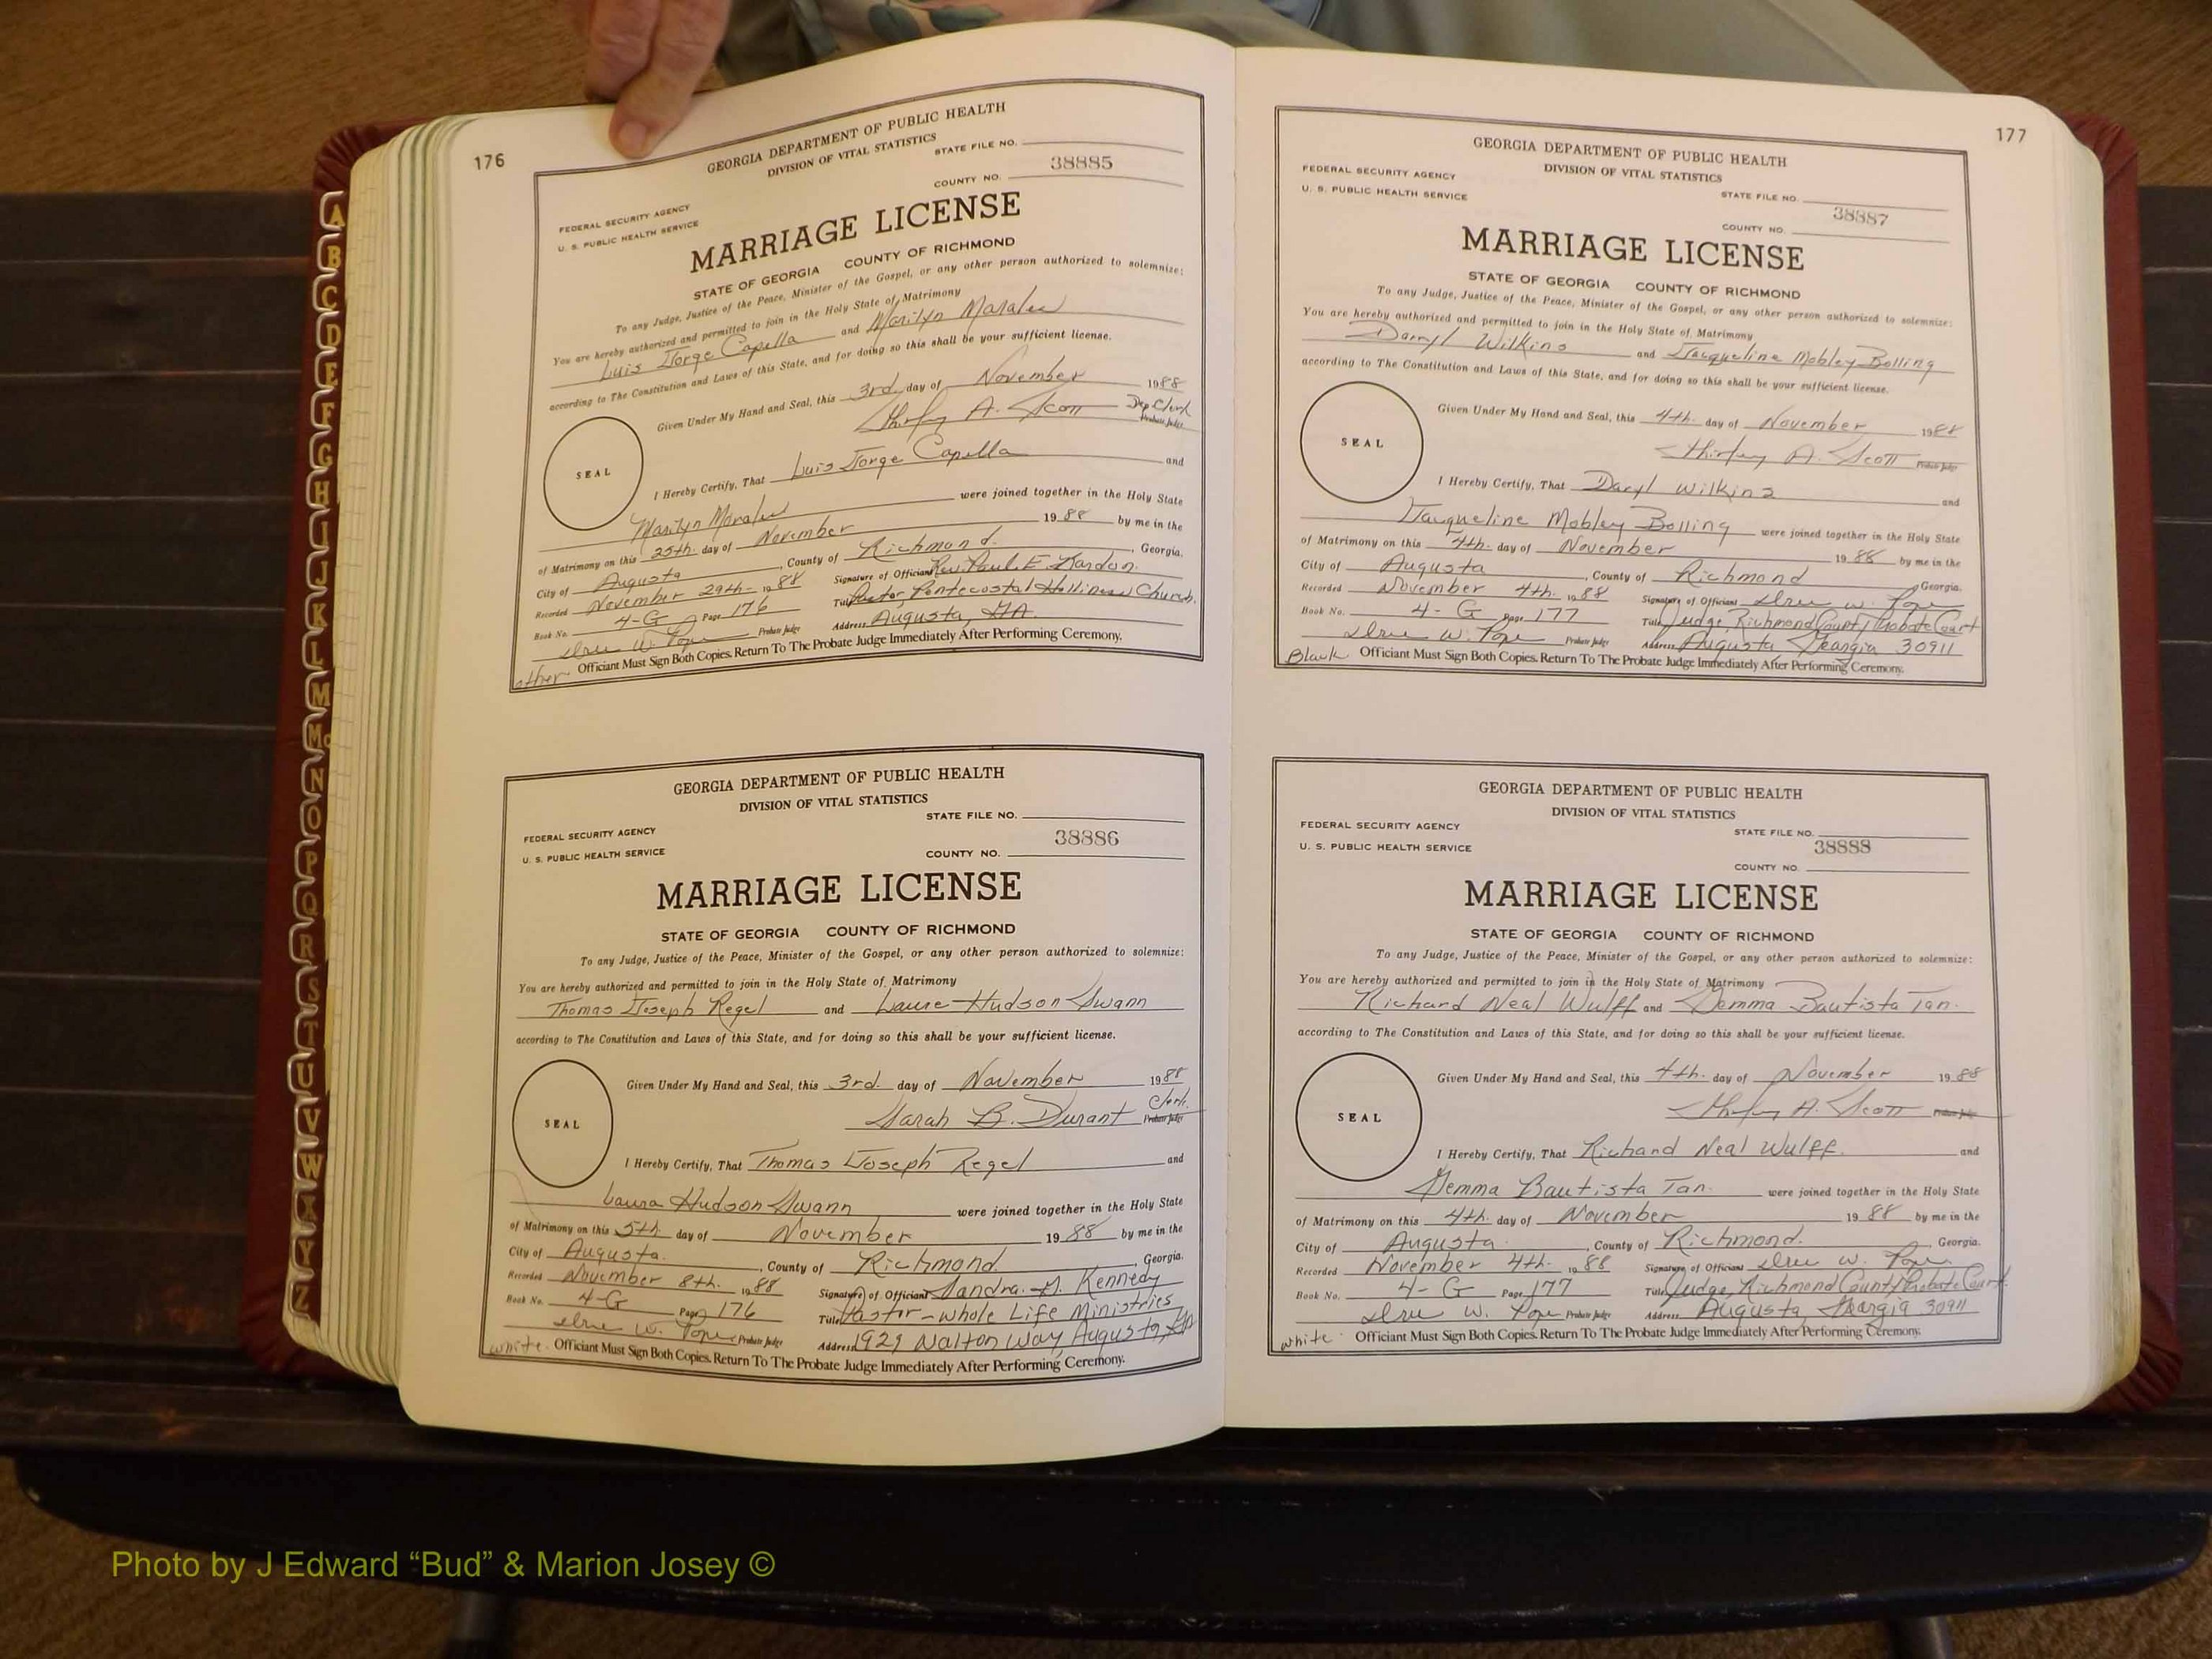 176
GEORGIA DEPARTMENT OF PUBLIC HEALTH
DIVISION OF VITAL STATISTICS
STATE FILE NO.
38885
COUNTY NO.
FEDERAL SECURITY AGENCY
U. S. PUBLIC HEALTH SERVICE
MARRIAGE LICENSE
STATE OF GEORGIA COUNTY OF RICHMOND
To any Judge, Justice of the Peace, Minister of the Gospel, or any other person authorized to solemnize:
You are hereby authorized and permitted to join in the Holy State of Matrimony
Luis Jorge Capella and Marilyn Morales
according to The Constitution and Laws of this State, and for doing so this shall be your sufficient license.
Given Under My Hand and Seal, this 3rd day of November 1988
Shirley A. Scott Dep Clerk
Probate Judge
SEAL
I Hereby Certify, That Luis Jorge Capella and
Marilyn Morales were joined together in the Holy State
of Matrimony on this 25th. day of November 1988 by me in the
City of Augusta, County of Richmond. Georgia.
Recorded November 29th 1988 Signature of Officiant Rev. Paul E.
Book No. 4-G Page 176 Title Pastor, Pentecostal Holiness Church.
W. Pope Probate Judge Address Augusta, GA.
other. Officiant Must Sign Both Copies. Return To The Probate Judge Immediately After Performing Ceremony.
GEORGIA DEPARTMENT OF PUBLIC HEALTH
DIVISION OF VITAL STATISTICS
STATE FILE NO.
38886
FEDERAL SECURITY AGENCY
U. S. PUBLIC HEALTH SERVICE
COUNTY NO.
MARRIAGE LICENSE
STATE OF GEORGIA COUNTY OF RICHMOND
To any Judge, Justice of the Peace, Minister of the Gospel, or any other person authorized to solemnize:
You are hereby authorized and permitted to join in the Holy State of Matrimony
Thomas Joseph Regel and Laura Hudson Swann
according to The Constitution and Laws of this State, and for doing so this shall be your sufficient license.
Given Under My Hand and Seal, this 3rd. day of November 1988
Sarah B. Durant Clerk.
Probate Judge
SEAL
I Hereby Certify, That Thomas Joseph Regel and
Laura Hudson Swann were joined together in the Holy State
of Matrimony on this 5th day of November 1988 by me in the
City of Augusta. , County of Richmond. , Georgia.
Recorded November 8th. 1988 Signature of Officiant Sandra. M. Kennedy
Book No. 4-G Page 176 Title Pastor - Whole Life Ministries
W. Pope Probate Judge Address 1929 Walton Way, Augusta, GA
white. Officiant Must Sign Both Copies. Return To The Probate Judge Immediately After Performing Ceremony.
177
GEORGIA DEPARTMENT OF PUBLIC HEALTH
DIVISION OF VITAL STATISTICS
FEDERAL SECURITY AGENCY
U. S. PUBLIC HEALTH SERVICE
STATE FILE NO.
38887
COUNTY NO.
MARRIAGE LICENSE
STATE OF GEORGIA COUNTY OF RICHMOND
To any Judge, Justice of the Peace, Minister of the Gospel, or any other person authorized to solemnize:
You are hereby authorized and permitted to join in the Holy State of Matrimony
Darryl Wilkins and Jacqueline Mobley Bolling
according to The Constitution and Laws of this State, and for doing so this shall be your sufficient license.
Given Under My Hand and Seal, this 4th. day of November 1988
Shirley A. Scott Probate Judge
SEAL
I Hereby Certify, That Daryl Wilkins and
Jacqueline Mobley Bolling were joined together in the Holy State
of Matrimony on this 4th. day of November 1988 by me in the
City of Augusta , County of Richmond Georgia.
Recorded November 4th. 1988 Signature of Officiant W. Pope
Book No. 4-G Page 177 Title Judge, Richmond County Probate Court
W. Pope Probate Judge Address Augusta, Georgia 30911
Black Officiant Must Sign Both Copies. Return To The Probate Judge Immediately After Performing Ceremony.
GEORGIA DEPARTMENT OF PUBLIC HEALTH
DIVISION OF VITAL STATISTICS
FEDERAL SECURITY AGENCY
U. S. PUBLIC HEALTH SERVICE
STATE FILE NO.
38888
COUNTY NO.
MARRIAGE LICENSE
STATE OF GEORGIA COUNTY OF RICHMOND
To any Judge, Justice of the Peace, Minister of the Gospel, or any other person authorized to solemnize:
You are hereby authorized and permitted to join in the Holy State of Matrimony
Richard Neal Wulff and Gemma Bautista Tan.
according to The Constitution and Laws of this State, and for doing so this shall be your sufficient license.
Given Under My Hand and Seal, this 4th. day of November 1988
Shirley A. Scott Probate Judge
SEAL
I Hereby Certify, That Richard Neal Wulff. and
Gemma Bautista Tan. were joined together in the Holy State
of Matrimony on this 4th. day of November 1988 by me in the
City of Augusta. , County of Richmond. , Georgia.
Recorded November 4th. 1988 Signature of Officiant W. Pope
Book No. 4-G Page 177 Title Judge, Richmond County Probate Court
W. Pope Probate Judge Address Augusta, Georgia 30911
white. Officiant Must Sign Both Copies. Return To The Probate Judge Immediately After Performing Ceremony.
A
B
C
D
E
F
G
H
I
J
K
L
M
Mc
N
O
P
Q
R
S
T
U
V
W
X
Y
Z
Photo by J Edward “Bud” & Marion Josey ©